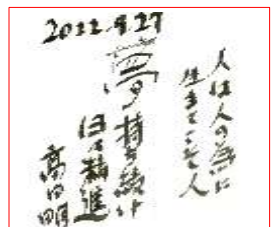 2022.9.27
人は人の為に
生きてこそ人
夢持ち続け
日々精進
高田明